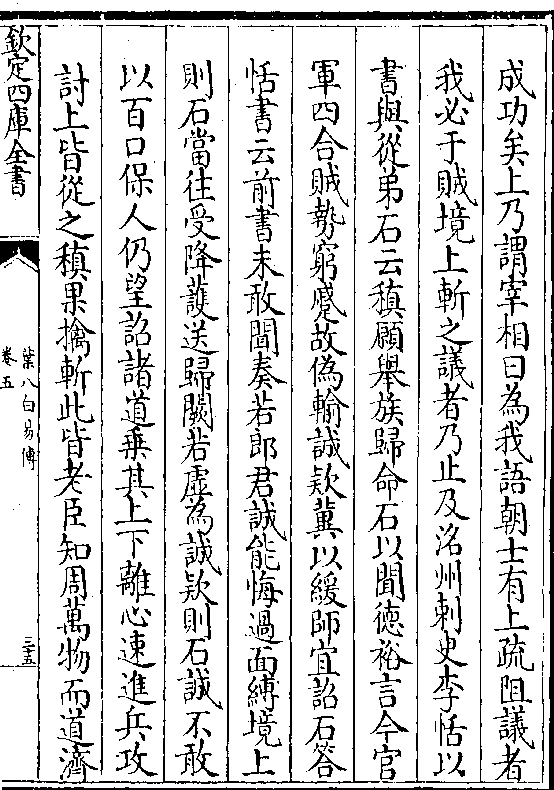 成功矣上乃謂宰相曰為我語朝士有上疏阻議者
我必于賊境上斬之議者乃止及洺州刺史李恬以
書與從弟石云稹願舉族歸命石以聞德裕言今官
軍四合賊勢窮蹙故偽輸誠款冀以緩師宜詔石答
恬書云前書未敢聞奏若郎君誠能悔過面縛境上
則石當往受降護送歸闕若虛為誠款則石誠不敢
以百口保人仍望詔諸道乗其上下離心速進兵攻
討上皆從之稹果擒斬此皆老臣知周萬物而道濟
欽定四庫全書
葉八白易傳
卷五
三五